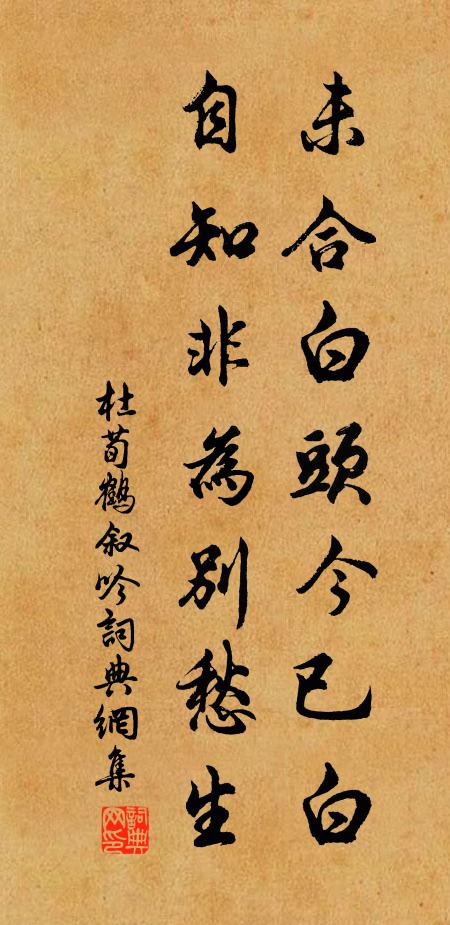 未合白頭今已白
自知非為別愁生
杜荀鶴叙吟詞典網集
詞典網印